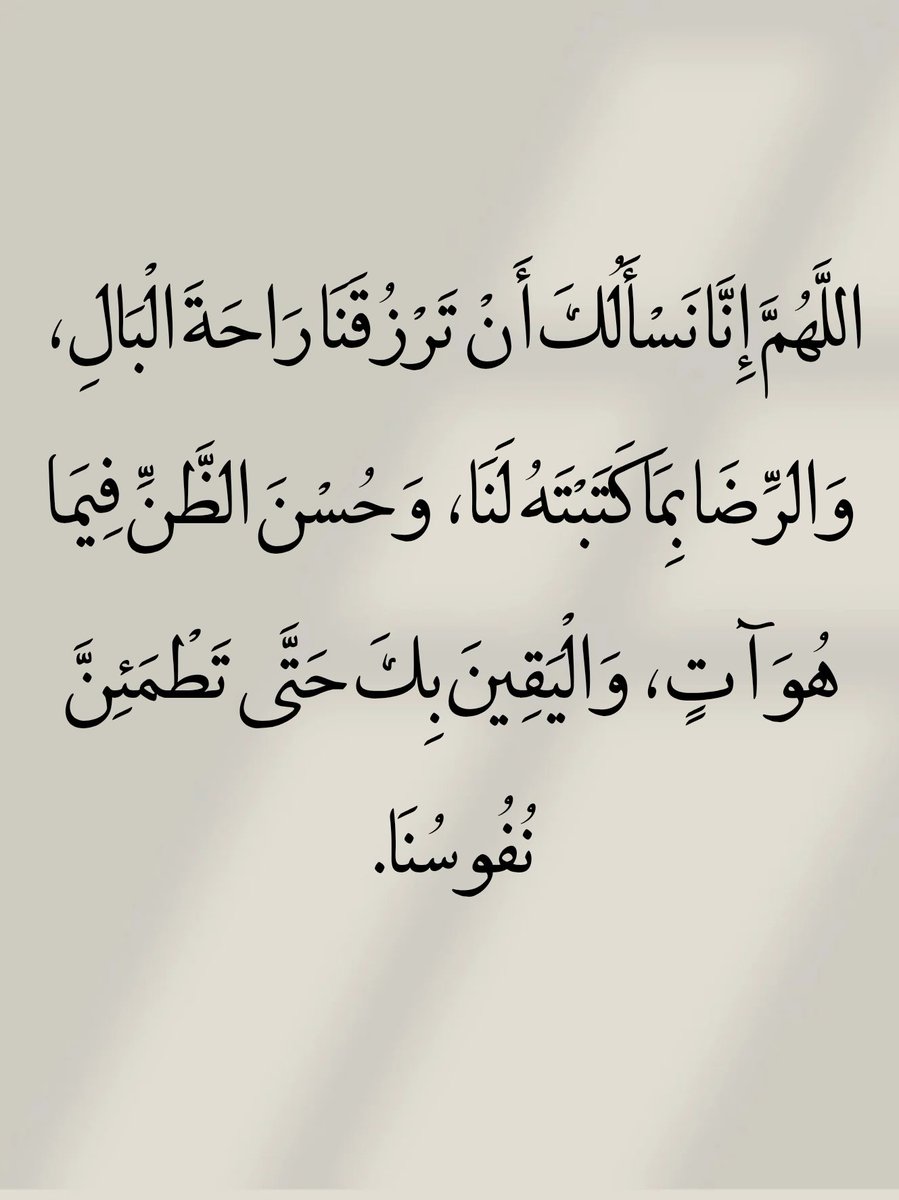 اللَّهُمَّ إِنَّا نَسْأَلُكَ أَنْ تَرْزُقَنَا رَاحَةَ الْبَالِ،
وَالرِّضَا بِمَا كَتَبْتَهُ لَنَا، وَحُسْنَ الظَّنِّ فِيمَا
هُوَ آتٍ، وَالْيَقِينَ بِكَ حَتَّى تَطْمَئِنَّ
نُفُوسُنَا.